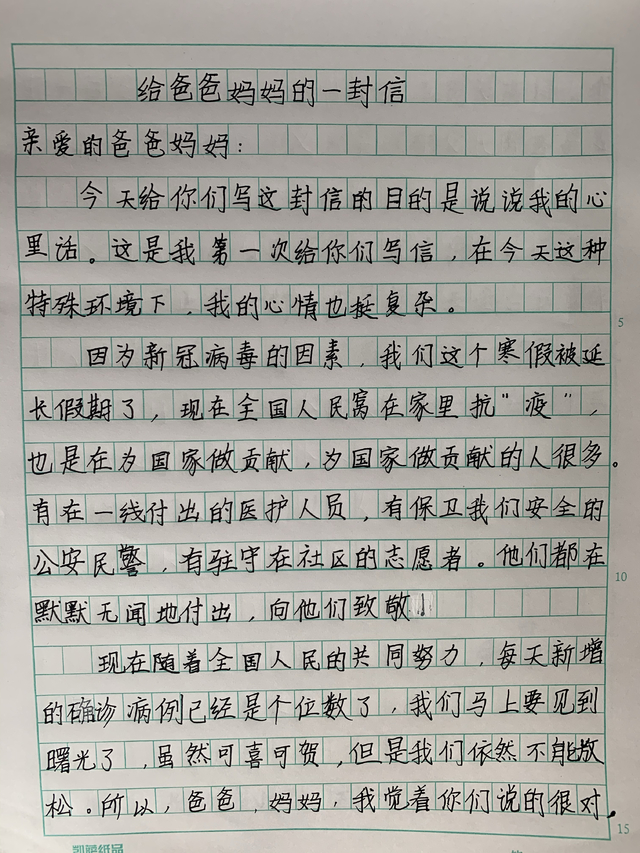 给爸爸妈妈的一封信
亲爱的爸爸妈妈：
今天给你们写这封信的目的是说说我的心
里话。这是我第一次给你们写信，在今天这种
特殊环境下，我的心情也挺复杂。
5
因为新冠病毒的因素，我们这个寒假被延
长假期了，现在全国人民窝在家里抗“疫”，
也是在为国家做贡献，为国家做贡献的人很多。
有在一线付出的医护人员，有保卫我们安全的
公安民警，有驻守在社区的志愿者。他们都在
10
默默无闻地付出，向他们致敬！
现在随着全国人民的共同努力，每天新增
的确诊病例已经是个位数了，我们马上要见到
曙光了，虽然可喜可贺，但是我们依然不能放
松。所以，爸爸，妈妈，我觉着你们说的很对。
15